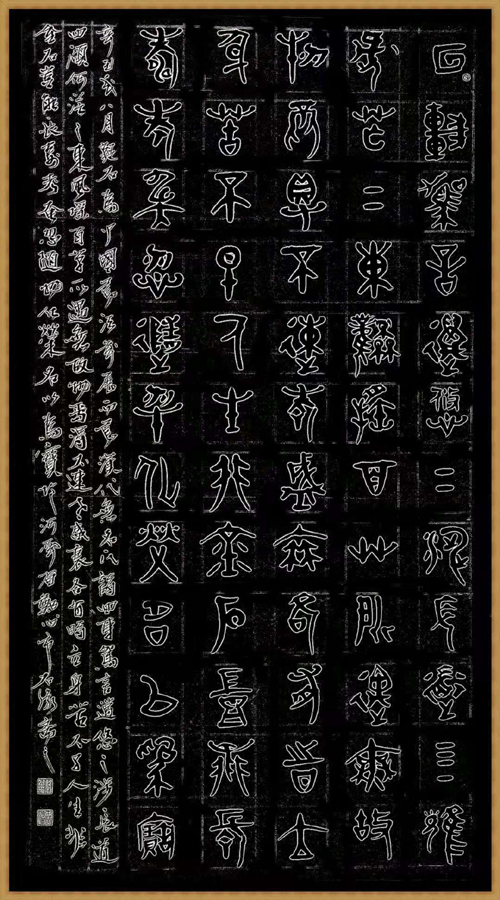 回車駕言邁悠=涉長道四顧
何茫=東風搖百草所遇無故
物焉得不速老盛衰各有時立
身苦不早人生非金石豈能長
壽考奄忽隨物化榮名以為寶
八月漢代無名氏詩回車駕言邁悠=涉長道
四顧何茫=東風搖百草所遇無故物焉得不速老盛衰各有時立身苦不早人生非
金石豈能長壽考奄忽隨物化榮名以為寶